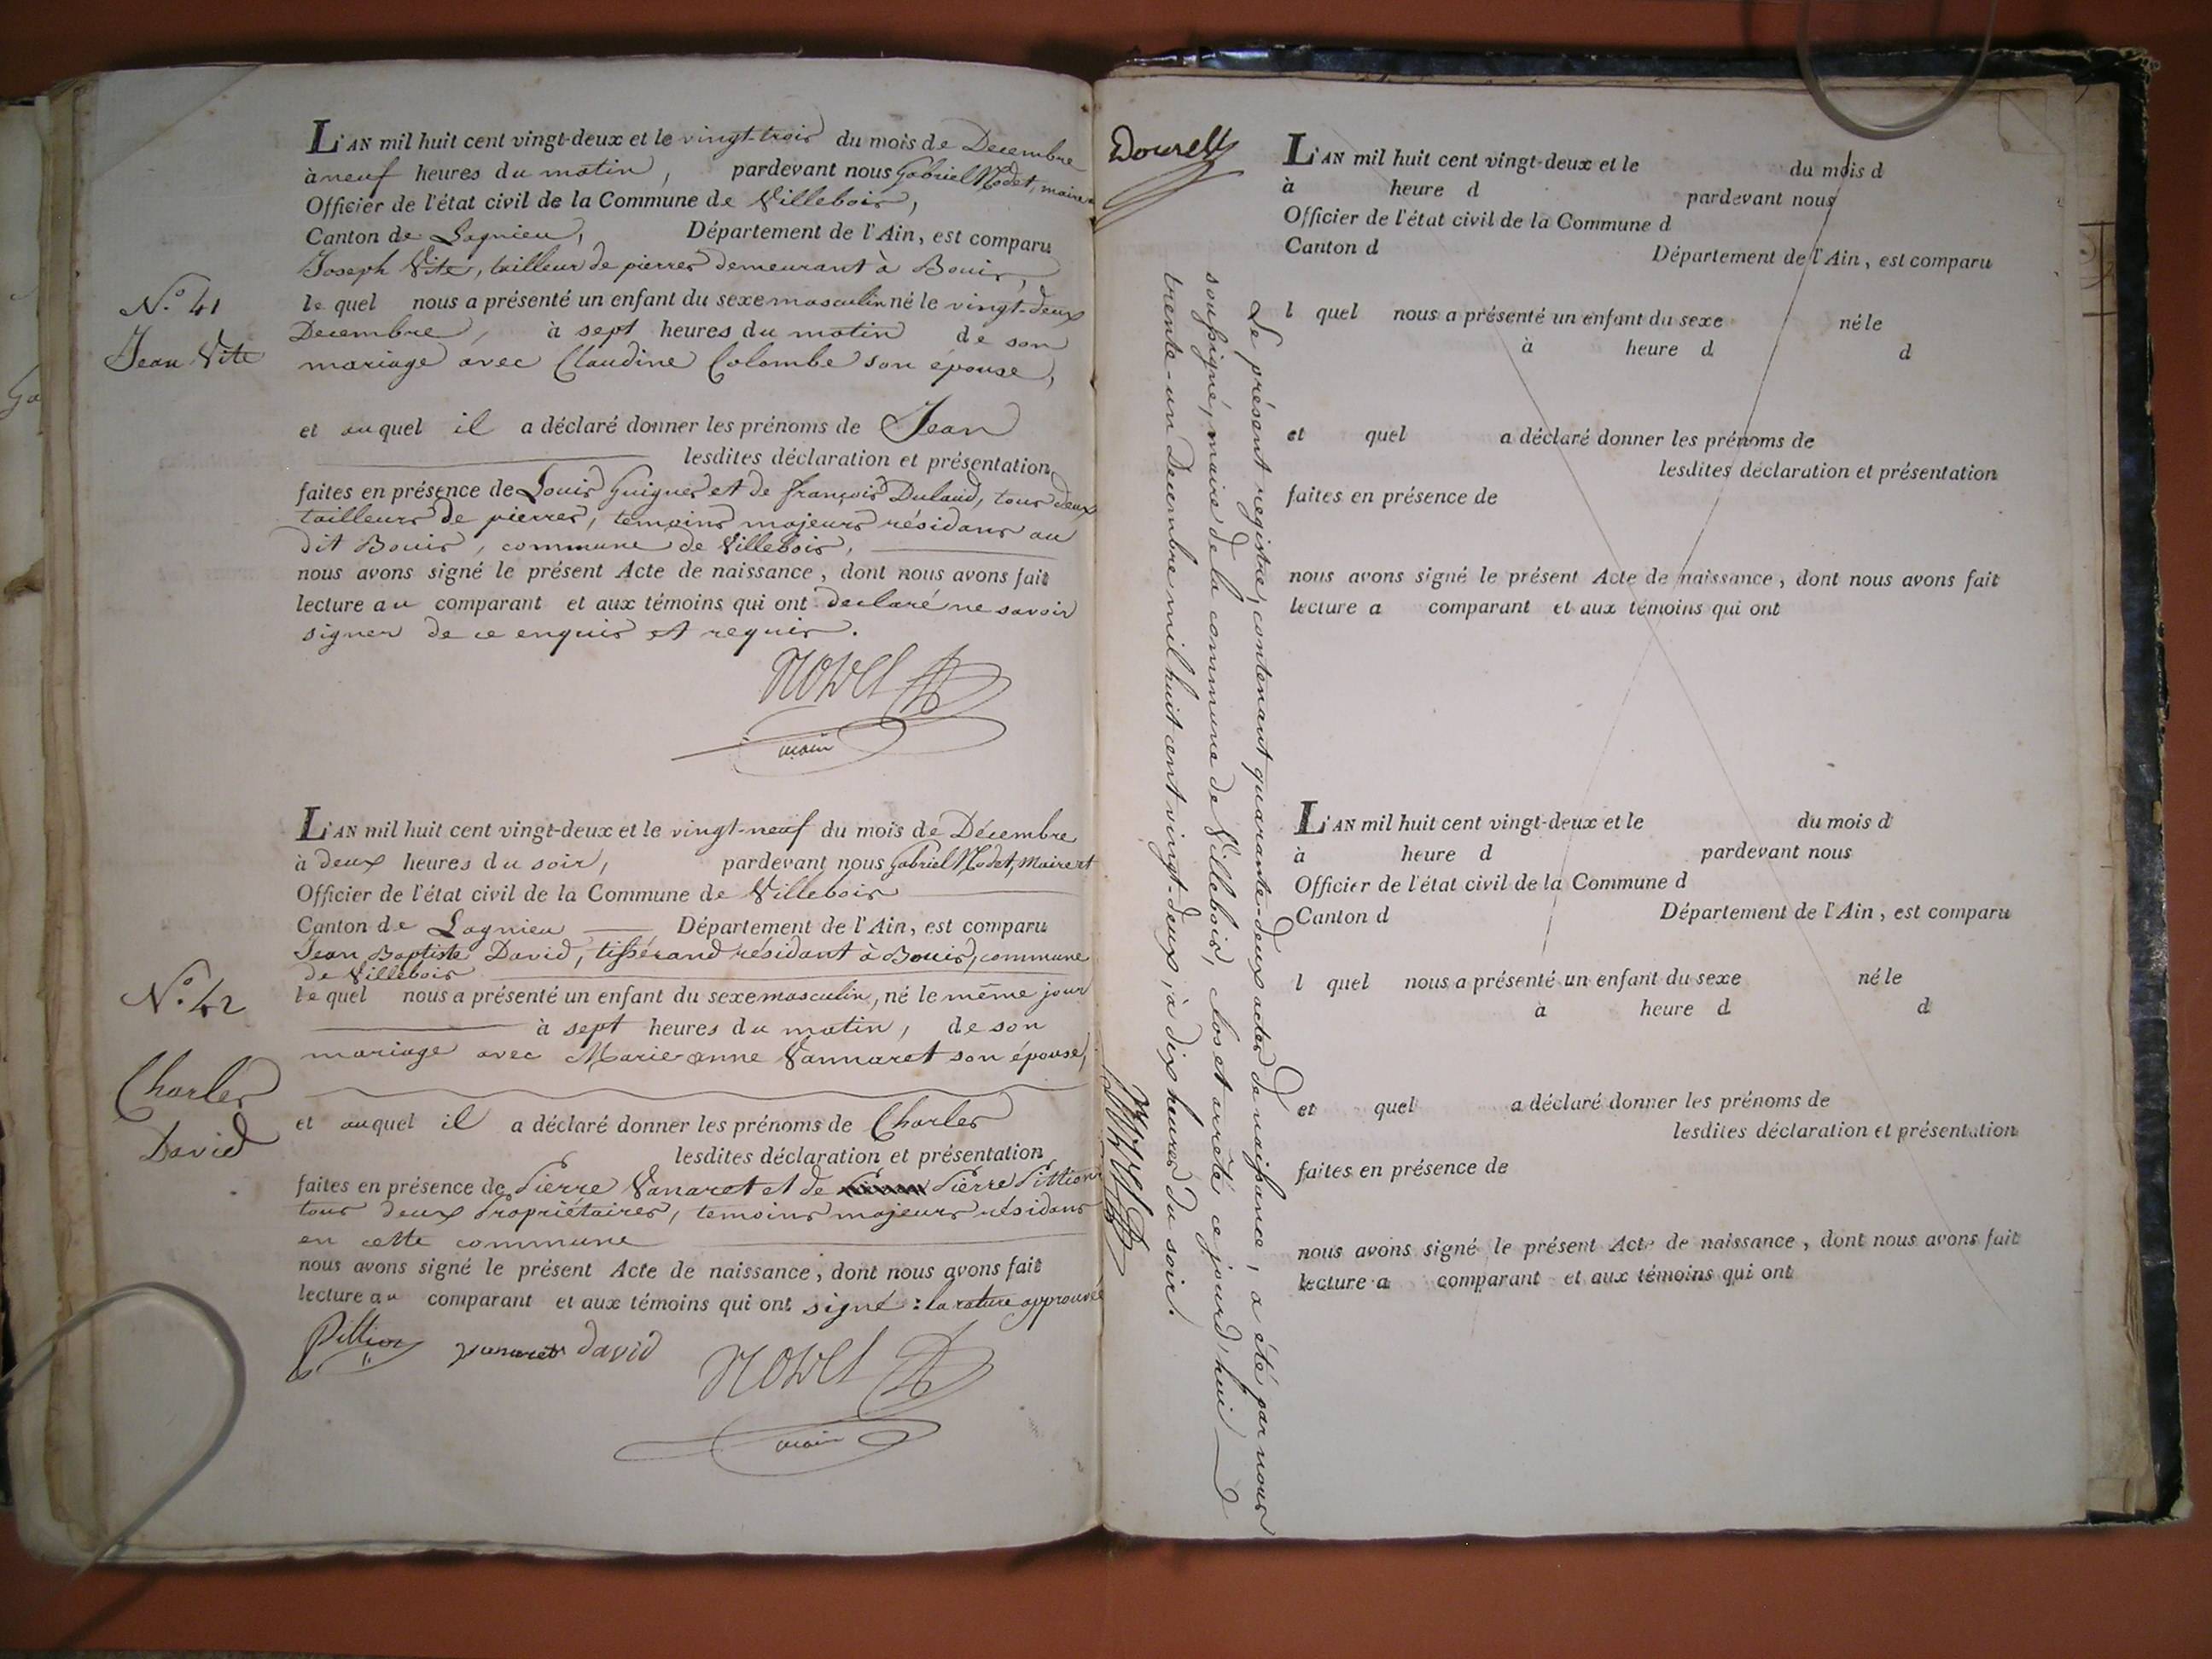 L'AN mil huit cent vingt-deux et le vingt-trois du mois de Decembre
à neuf heures du matin, pardevant nous Gabriel Nodet, maire
Officier de l'état civil de la Commune de Villebois,
Canton de Lagnieu, Département de l'Ain, est comparu
Joseph Vite, tailleur de pierres demeurant à Bouis,
N.o 41
Jean Vite
le quel nous a présenté un enfant du sexe masculin né le vingt-deux
Decembre, à sept heures du matin de son
mariage avec Claudine Colombe son épouse,
et auquel il a déclaré donner les prénoms de Jean
lesdites déclaration et présentation
faites en présence de Louis Guigue et de françois Dulaud, tous deux
tailleurs de pierres, temoins majeurs résidans au
dit Bouis, commune de Villebois,
nous avons signé le présent Acte de naissance, dont nous avons fait
lecture au comparant et aux témoins qui ont declaré ne savoir
signer de ce enquis et requis.
Nodet
maire
L'AN mil huit cent vingt-deux et le vingt-neuf du mois de Décembre
à deux heures du soir, pardevant nous Gabriel Nodet, maire et
Officier de l'état civil de la Commune de Villebois
Canton de Lagnieu Département de l'Ain, est comparu
Jean Baptiste David, tisserand résidant à Bouis, commune
de Villebois
N.o 42
Charles
David
le quel nous a présenté un enfant du sexe masculin, né le même jour
à sept heures du matin, de son
mariage avec Marie-anne Vannaret son épouse,
et auquel il a déclaré donner les prénoms de Charles
lesdites déclaration et présentation
faites en présence de Pierre Vanaret et de Pierre Pittion
tous deux propriétaires, temoins majeurs résidans
en cette commune
nous avons signé le présent Acte de naissance, dont nous avons fait
lecture au comparant et aux témoins qui ont signé : la rature approuvée
Pittion vanaret david Nodet
maire
Le présent registre, contenant quarante-deux actes de naissance, a été par nous
soussigné, maire de la commune de Villebois, clos et arrêté ce jourd'hui
trente-un Decembre mil huit cent vingt-deux, à dix heures du soir.
Nodet
L'AN mil huit cent vingt-deux et le du mois d
à heure d pardevant nous
Officier de l'état civil de la Commune d
Canton d Département de l'Ain, est comparu
l quel nous a présenté un enfant du sexe né le
à heure d d
et quel a déclaré donner les prénoms de
lesdites déclaration et présentation
faites en présence de
nous avons signé le présent Acte de naissance, dont nous avons fait
lecture a comparant et aux témoins qui ont
L'AN mil huit cent vingt-deux et le du mois d
à heure d pardevant nous
Officier de l'état civil de la Commune d
Canton d Département de l'Ain, est comparu
l quel nous a présenté un enfant du sexe né le
à heure d d
et quel a déclaré donner les prénoms de
lesdites déclaration et présentation
faites en présence de
nous avons signé le présent Acte de naissance, dont nous avons fait
lecture a comparant et aux témoins qui ont